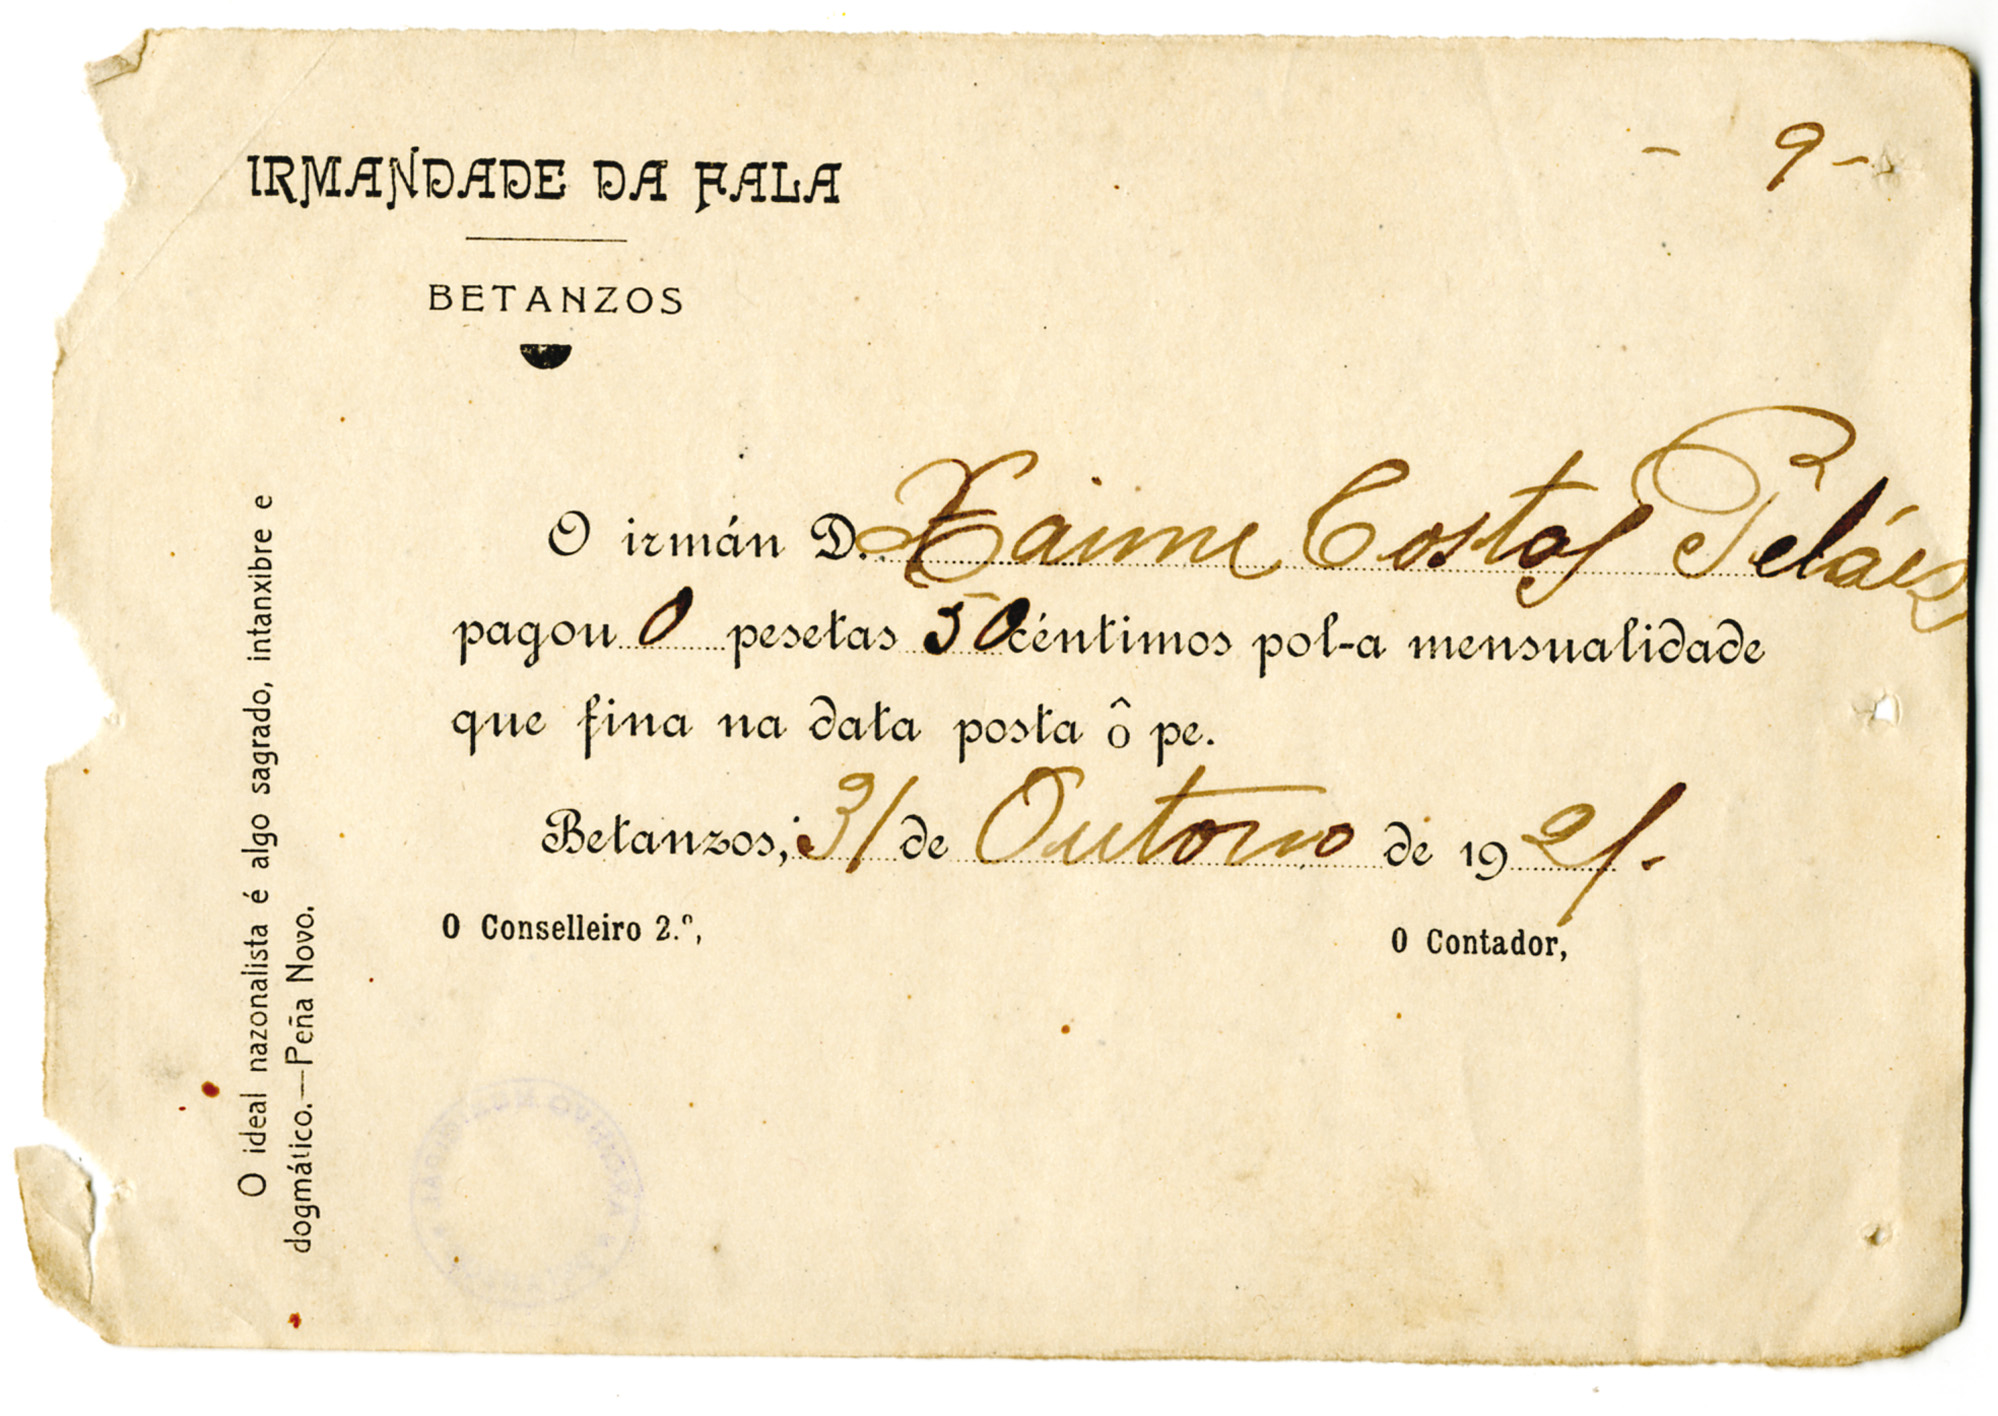 - 9 -
IRMANDADE DA FALA
BETANZOS
O irmán D. Xaime Costas Peláez
pagou 0 pesetas 50 céntimos pol-a mensualidade
que fina na data posta ô pe.
Betanzos, 31 de Outono de 1921.
O Conselleiro 2.º,
O Contador,
O ideal nazonalista é algo sagrado, intanxibre e
dogmático.—Peña Novo.